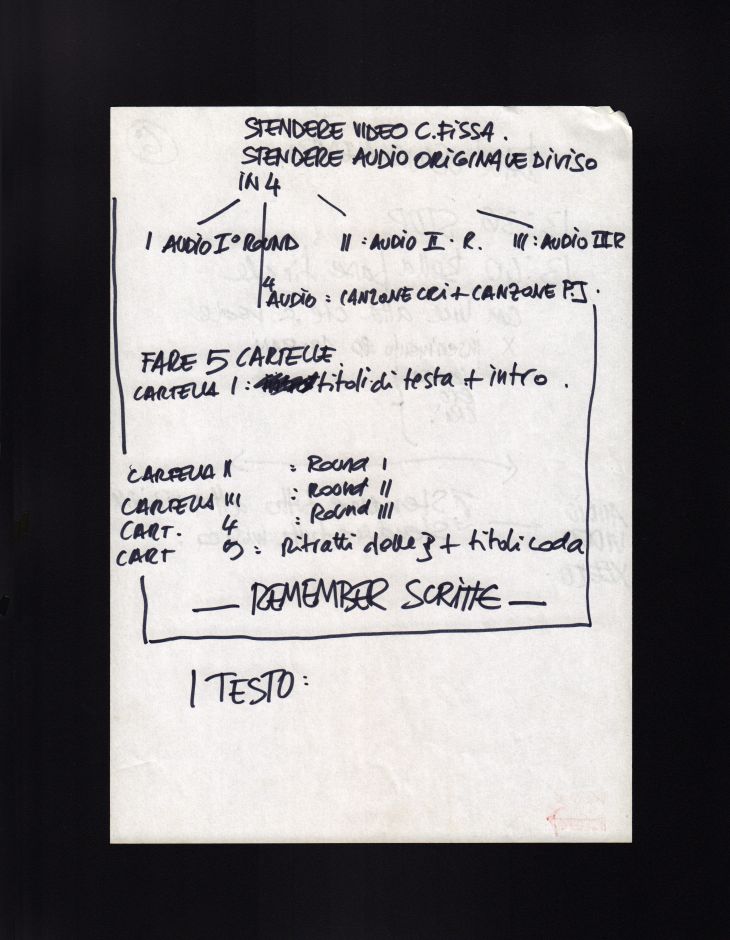 STENDERE VIDEO C.FISSA.
STENDERE AUDIO ORIGINALE DIVISO
IN 4
I AUDIO I° ROUND II : AUDIO II · R. III : AUDIO III R
4 AUDIO : CANZONE CRI + CANZONE P.J.
FARE 5 CARTELLE.
CARTELLA I : titoli di testa + intro .
CARTELLA II : Round I
CARTELLA III : Round II
CART. 4 : Round III
CART 5 : Ritratti delle 3 + titoli coda
— REMEMBER SCRITTE —
I TESTO :